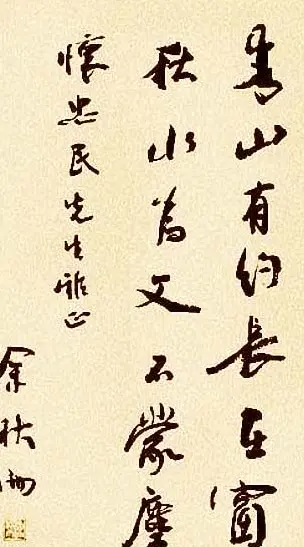 青山有约長在窗
秋水為文不蒙塵
懷忠民先生雅正
余秋雨